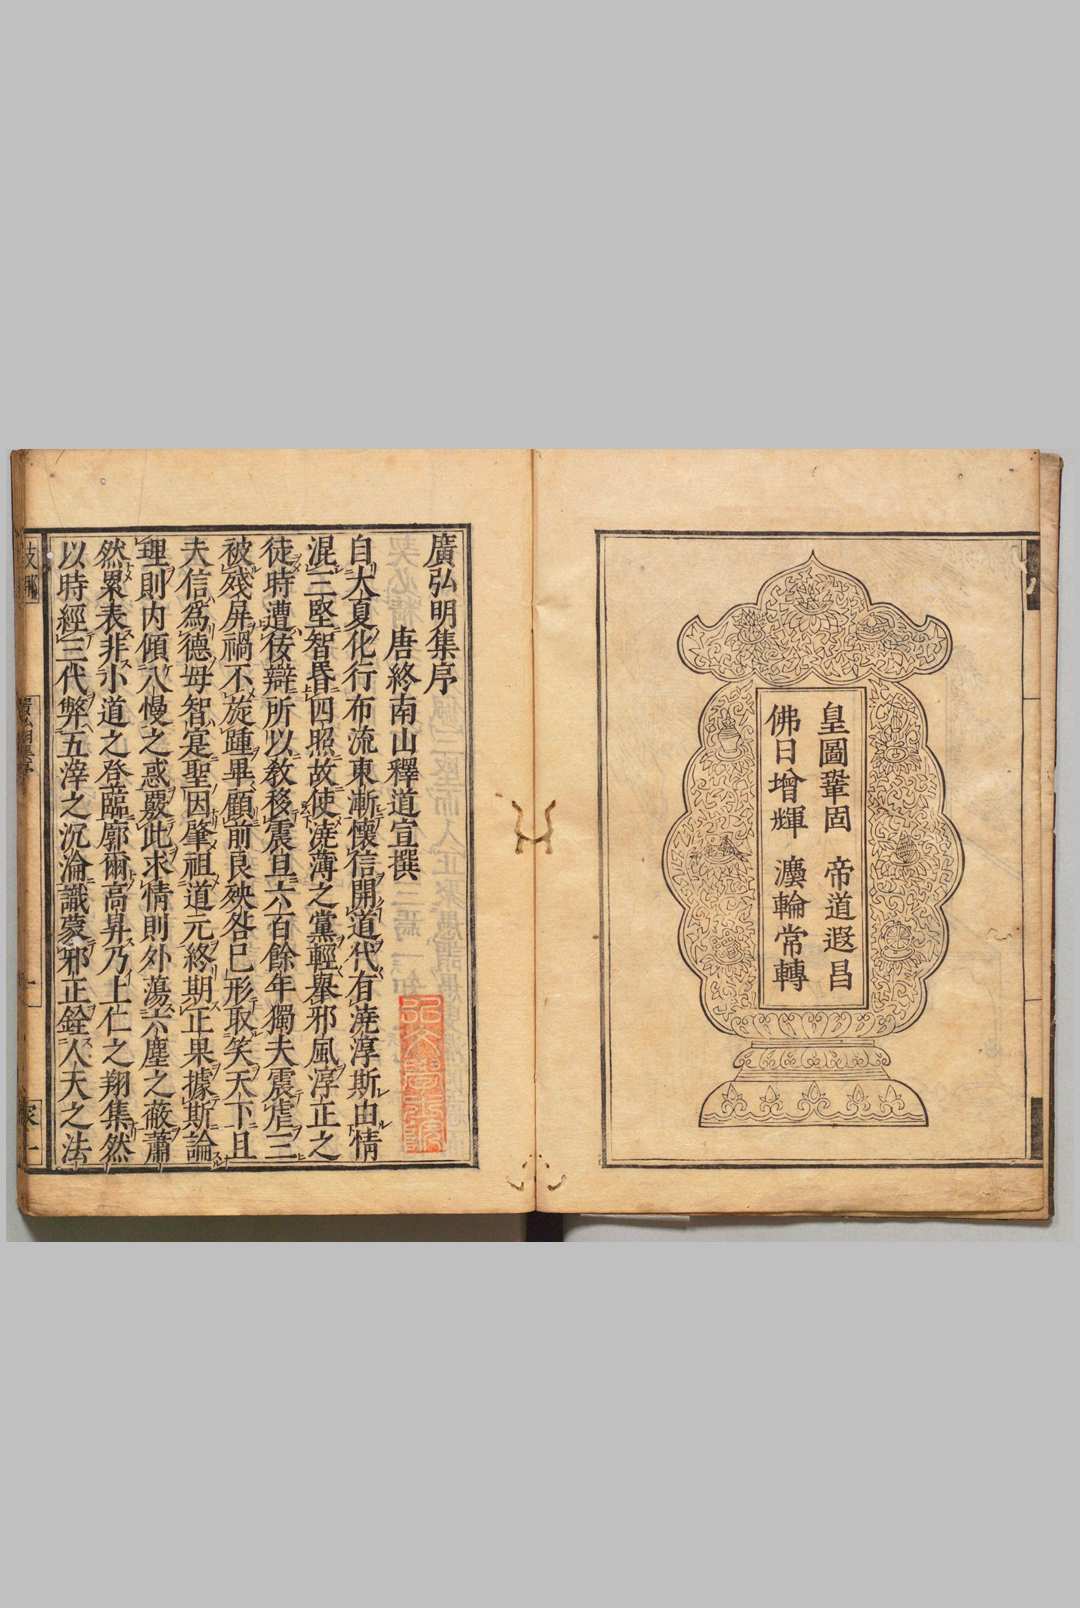 皇圖鞏固　帝道遐昌
佛日增輝　灋輪常轉
廣弘明集序
唐終南山釋道宣撰
自大夏化行布流東漸懷信開道代有澆淳斯由情
混三堅智昏四照故使澆薄之黨輕舉邪風淳正之
徒時遭佞辯所以教移震旦六百餘年獨夫震虐三
被殘屏禍不旋踵畢顧前良殃咎已形取笑天下且
夫信爲德母智寔聖因肇祖道元終期正果據斯論
理則内傾八慢之惑覈此求情則外蕩六塵之蔽蕭
然累表非小道之登臨廓爾高昇乃上仁之翔集然
以時經三代弊五滓之沉淪識蒙邪正銓人天之法